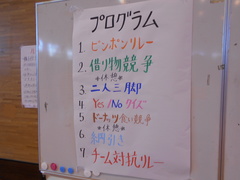 プログラム
1. ピンポンリレー
2. 借り物競争
*休憩*
3 二人三脚
4 Yes/Noクイズ
5 ドーナッツ食い競争
*休憩*
6 綱引き
7 チーム対抗リレー